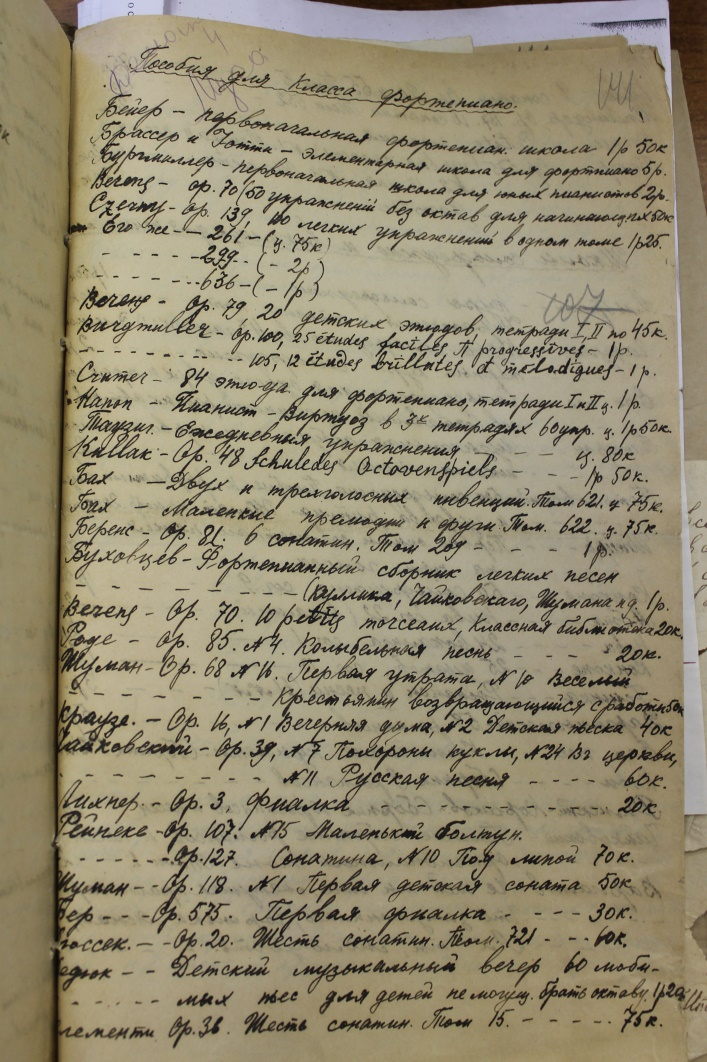 Пособия для класса фортепиано.
Бейер – первоначальная фортепиан. школа 1р 50к
Брассер и Тотти – элементерная школа для фортпиано 5р.
Бургмиллер – первоначальная школа для юных пианистов 2р.
Berens – op. 70 (50 упражнений без октав для начинающих 50к
Czerny – op. 139, 100 легких упражнений в одном томе 1р 25.
Его же – – 261 – (ц. 75к)
- - - - - - 299 – ( – 2р)
- - - - - - 636 – ( – 1р)
107
Berens – Op. 79 20 детских этюдов, тетради I, II по 45к.
Burgmuller – Op. 100, 25 études faciles et progressives – 1р.
- - - - - - - - - - 105, 12 études brillntes et melodigues – 1р.
Cramer – 84 этюда для фортепиано, тетради I и II ц. 1р.
Ганон – Пианист – Виртуоз в 3х тетрадях 60 упр. ц. 1р 50к.
Таузиг – Ежедневныя упражнения – – – ц. 80к
Kullak – Op. 48 Schuledes Octovenspiels – – – 1р 50к.
Бах – Двух и трехголосных инвенций. Том 621. ц 75к.
Бах – Маленькие прелюдии и други. Том. 622. ц. 75к.
Беренс – Op. 81. 6 сонатин. Том 209 – – – – 1р.
Буховцев – Фортепианный сборник легких песен
- - - - - - - - - (Куллика, Чайковскаго, Шумана и д. 1р.
Berens – Op. 70. 10 petits morceaux, Классная библиотека 20к.
Роде – Op. 85. №4. Колыбельная песнь – – – – 20к.
Шуман – Op. 68 №16. Первая утрата, №10 Веселый
- - - - - - - - крестьянин возвращающийся с работы 50к
Краузе. – Op. 16, №1 Вечерняя дума, №2 Детская пьеска 40к
Чайковский – Op. 39, №7 Похороны куклы, №24 Въ церкви,
- - - - - - - - №11 Русская песня – – – – 60к.
Лихнер. – Op. 3, Фиалка – – – – – – – – – 20к
Рейнеке – Op. 107. №15 Маленький болтун.
- - - - - - Op. 127. Сонатина, №10 Под липой 70к.
Шуман – – Op. 118. №1 Первая детская соната 50к
Бер – – – Op. 575. Первая фиалка – – – – 30к.
юссек. – – Op. 20. Шесть сонатин. Том. 721 – – – 60к.
едюк – – Детский музыкальный вечер 60 люби-
- - - - - - мых пьес для детей не могущ. брать октаву 1р 20к
лементи Op. 36. Шесть сонатин. Том 15. – – – – – 75к.